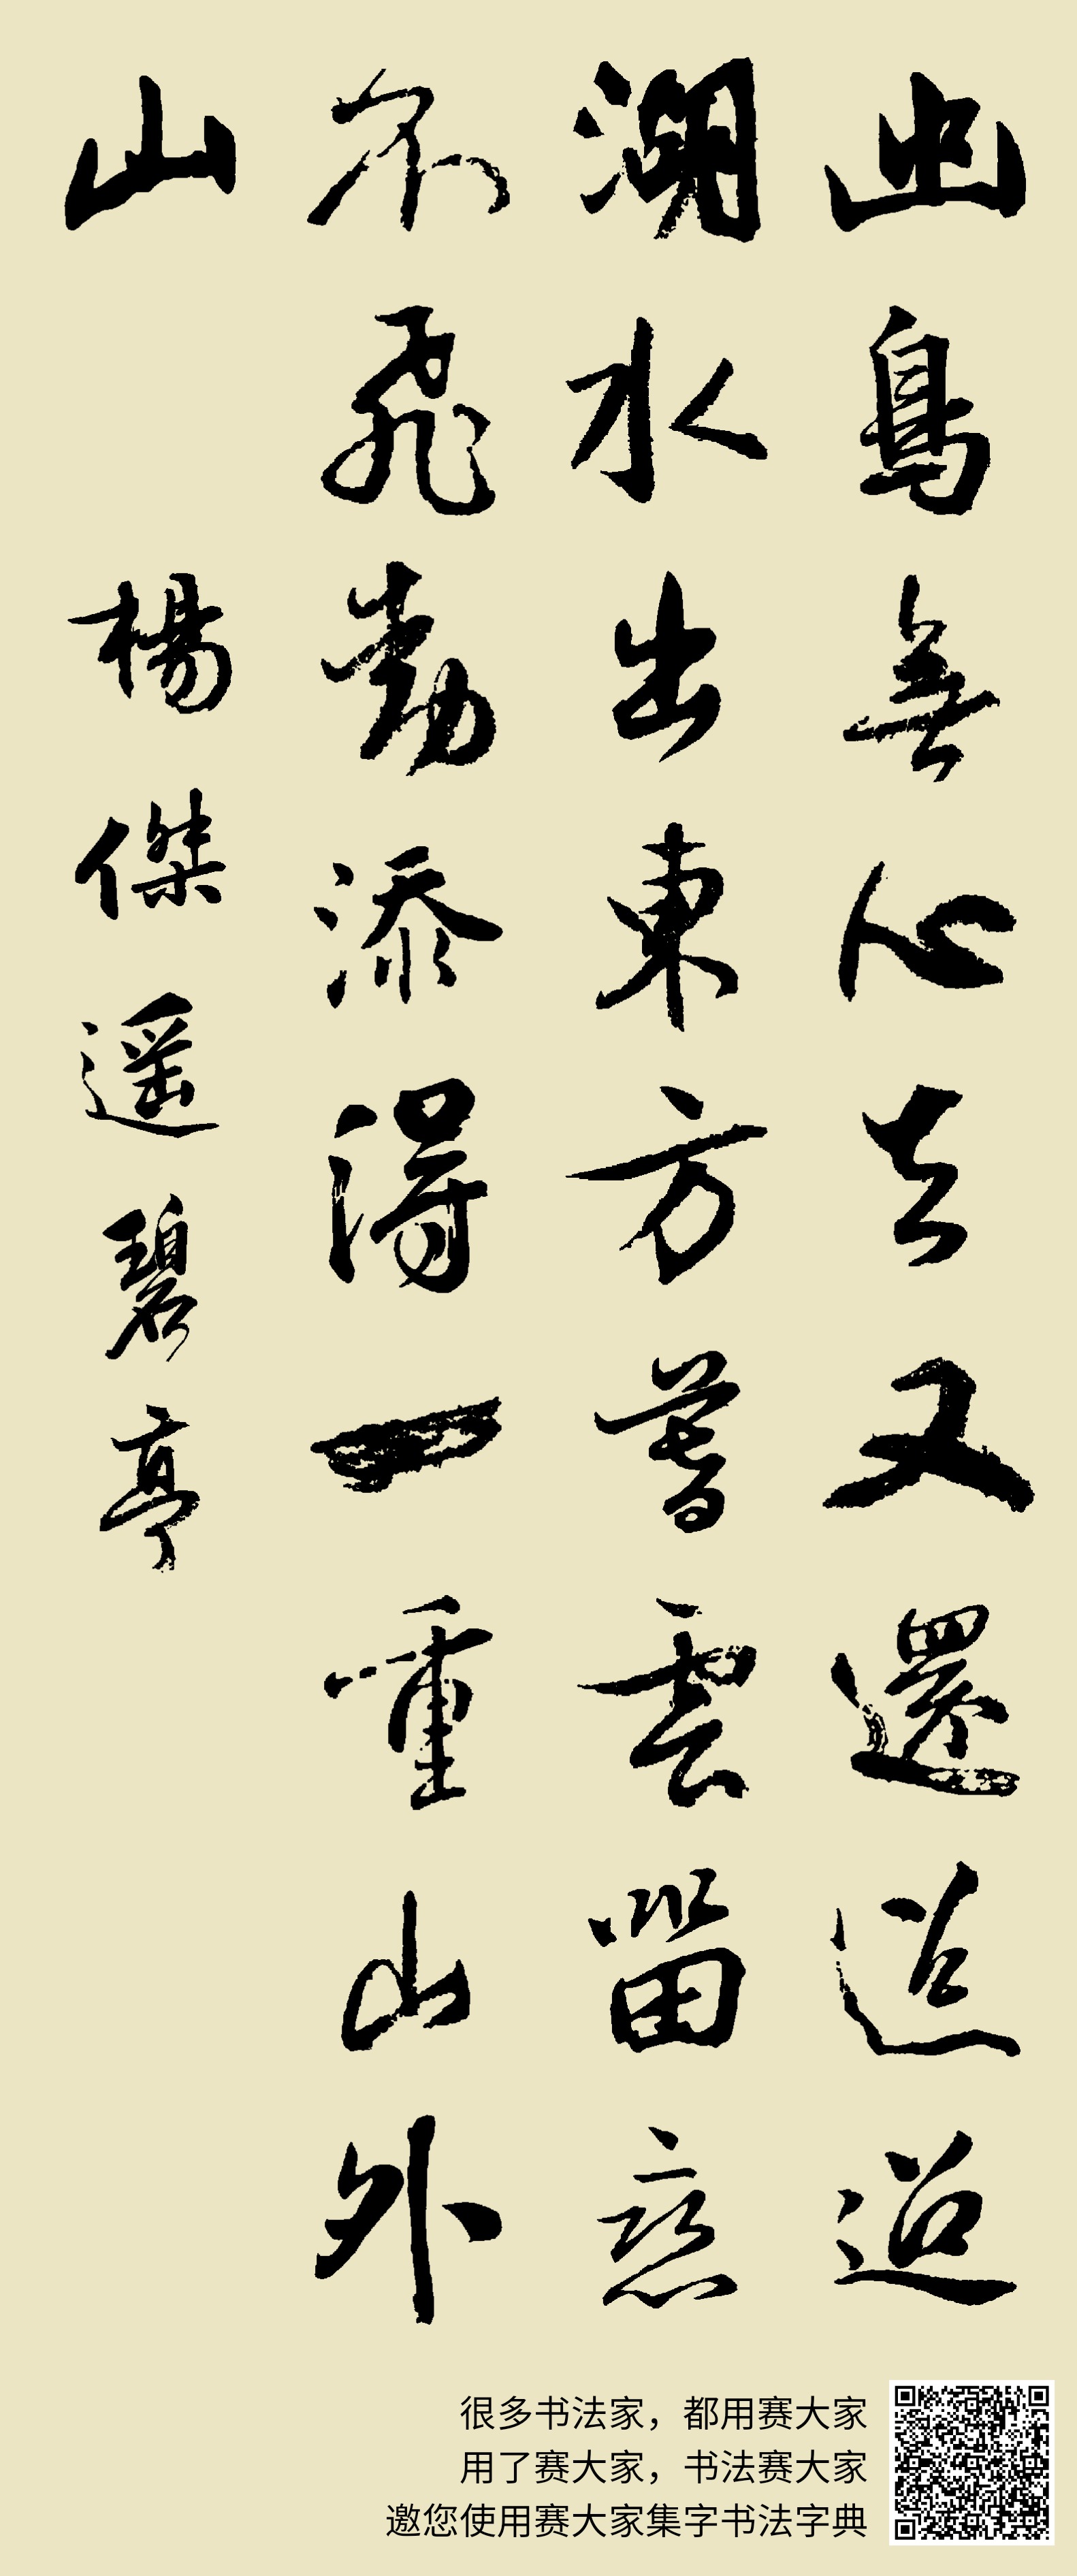 幽鳥無心去又還迢迢
湖水出東方暮雲留戀
不飛動添得一重山外
山 楊傑遥碧亭
很多书法家，都用赛大家
用了赛大家，书法赛大家
邀您使用赛大家集字书法字典